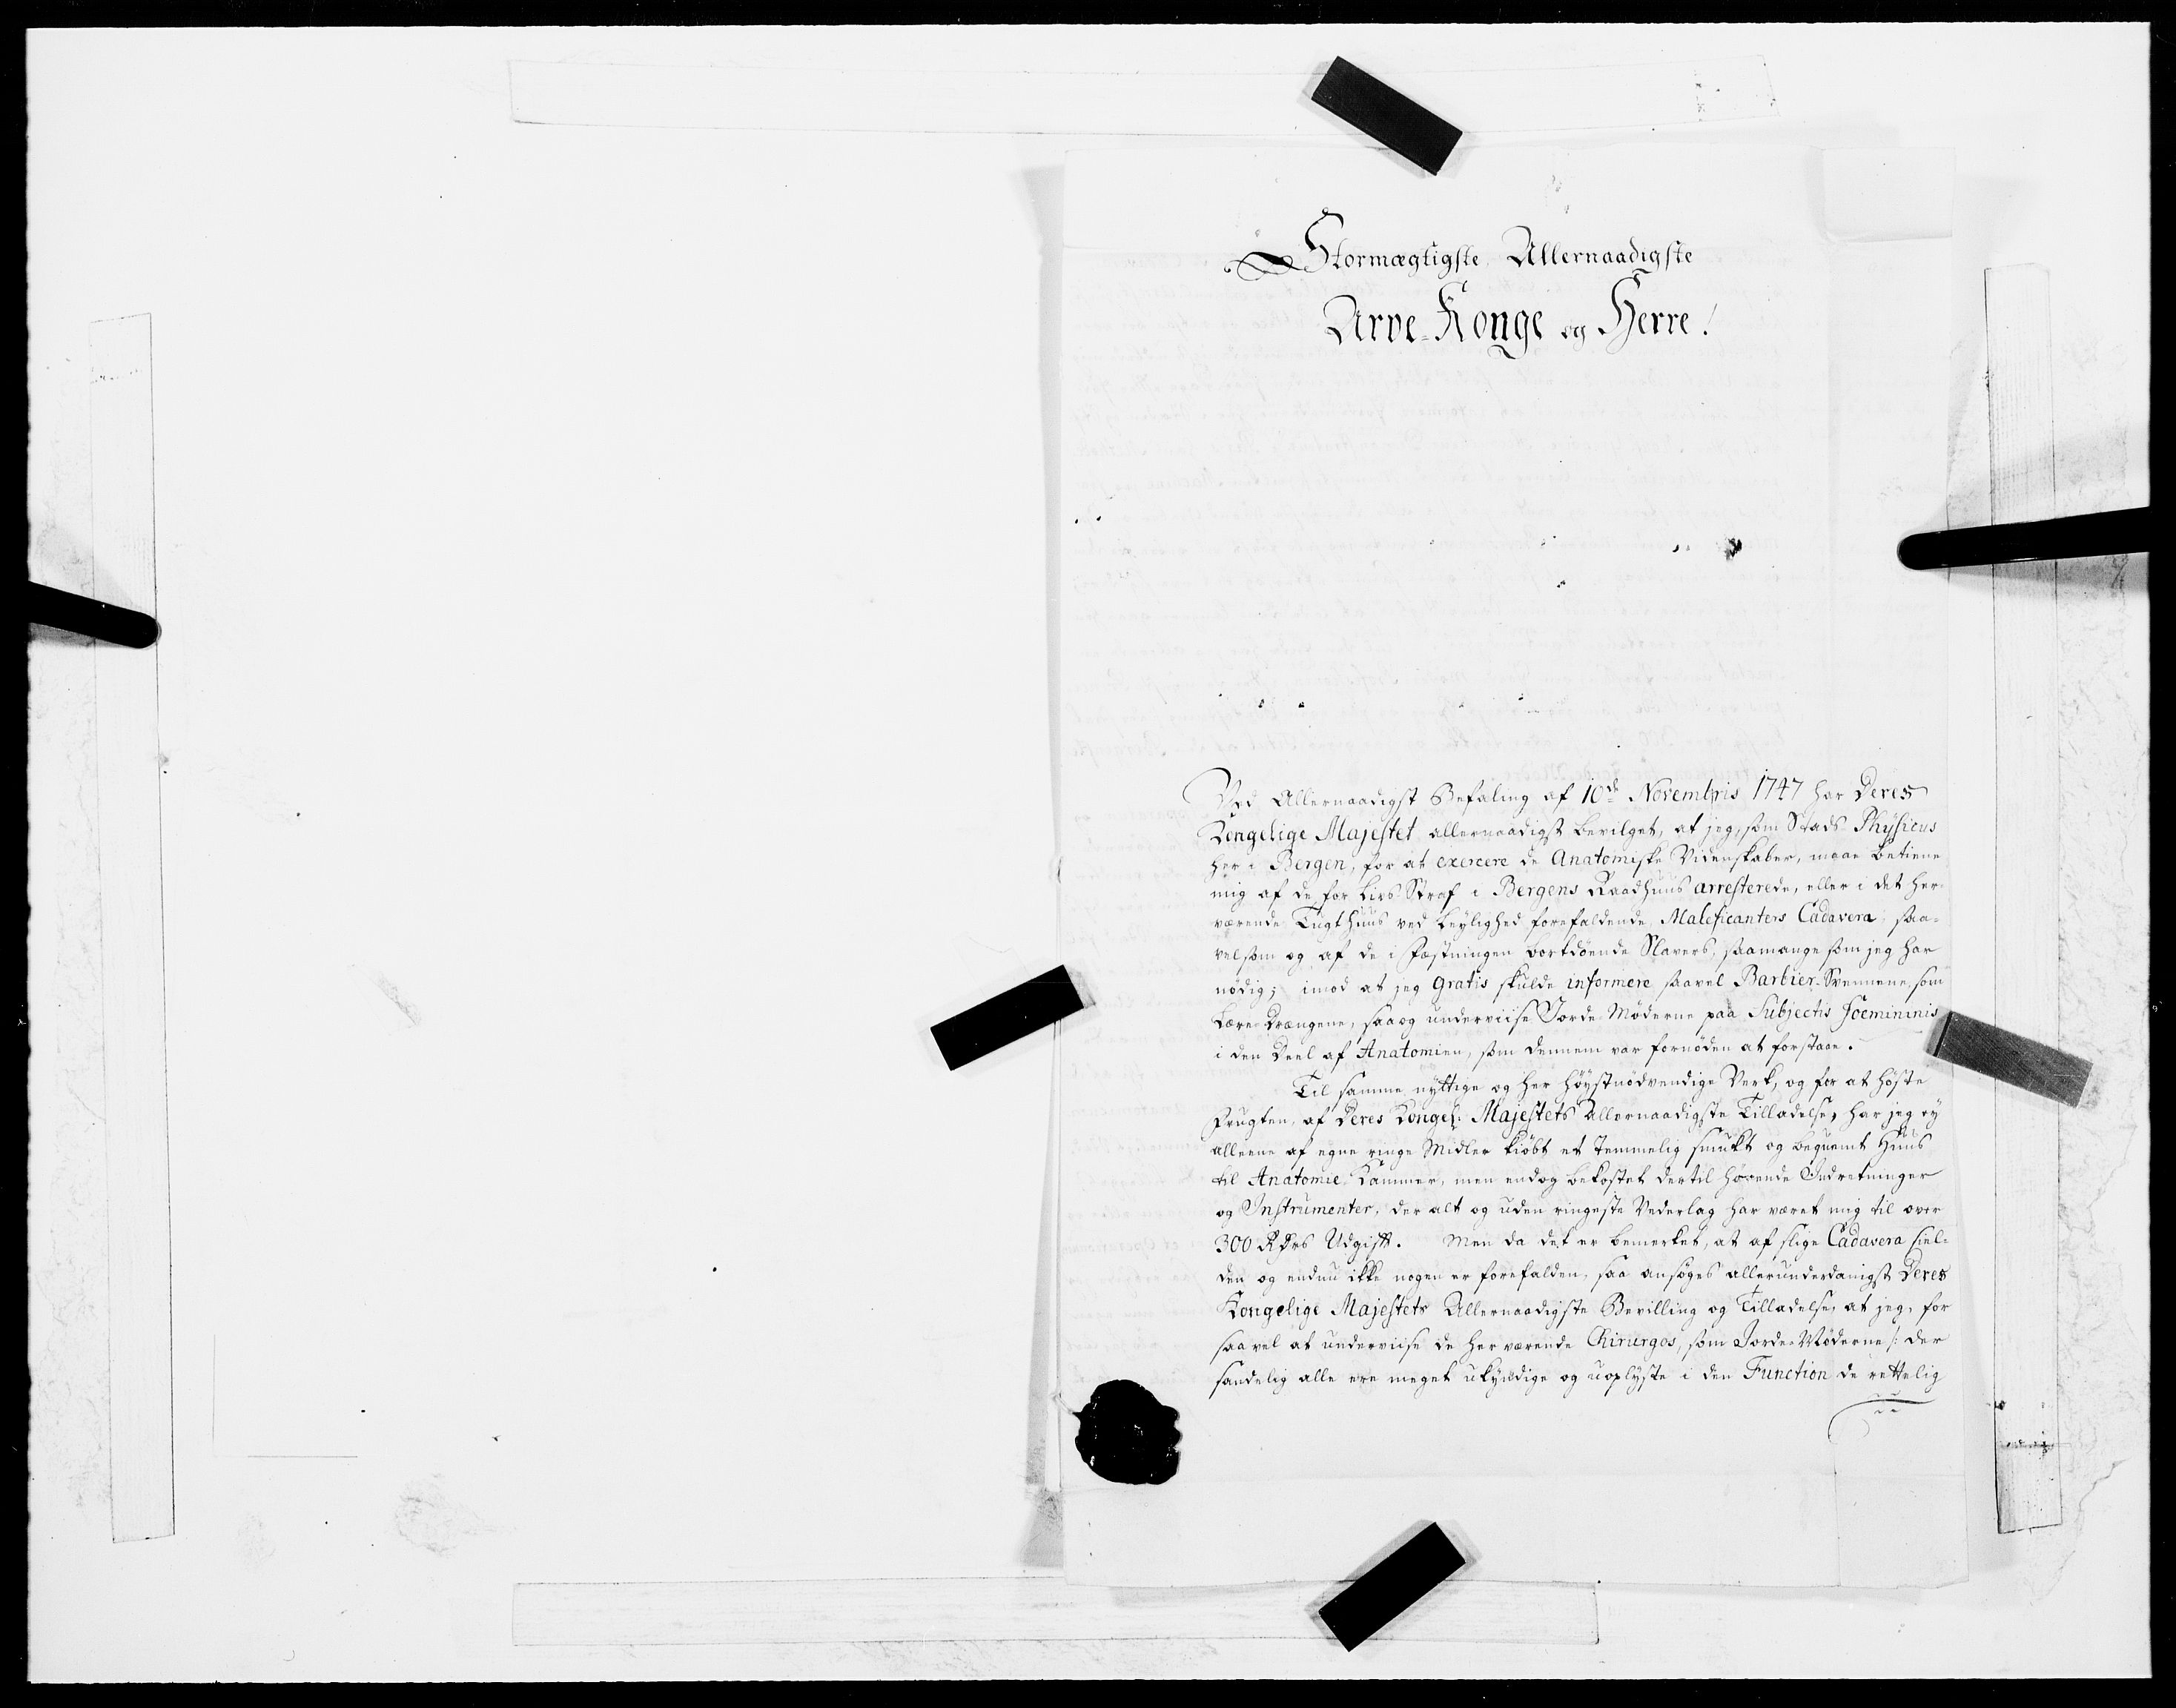 Stormægtigste Allernaadigste
Arve-Konge og Herre!
Ved Allernaadigst Befaling af 10de Novembris 1747 har Deres
Kongelige Majestet allernaadigst bevilget, at jeg, som Stads Physicus
her i Bergen, for at exercere de Anatomiske Videnskaber, maae betiene
mig af de for Livs Straf i Bergens Raadhuus arresterede, eller i det her-
værende Tugthuus ved leylighed forefaldende Maleficanters Cadavera, saa-
velsom og af de i Fæstningen bortdøende Slavers, saamange som jeg har
nödig; imod at jeg gratis skulde informere saavel Barbier-Svennene, som
Lære-Drængene, saa og underviise Jorde-Møderne paa Subjectis Foemininis
i den Deel af Anatomien, som dennem var fornøden at forstaae.
Til samme nyttige og her höystnödvendige Verk, og for at höste
Frugten, af Deres Kongel: Majestets Allernaadigste Tilladelse, har jeg ey
alleene af egne ringe Midler kiøbt et temmelig smukt og bequemt Huus
til Anatomie-Kammer, men endog bekostet dertil hørende Indretninger
og Instrumenter, der alt og uden ringeste Vederlag har været mig til over
300 Rdrs Udgift. Men da det er bemerket, at af slige Cadavera siel-
den og endnu ikke nogen er forefalden, saa ansøges allerunderdanigst Deres
Kongelige Majestets Allernaadigste Bevilling og Tilladelse, at jeg, for
saavel at underviise de herværende Chirurgos, som Jorde-Møderne /: der
sandelig alle ere meget ukyndige og uoplyste i den Function de rettelig